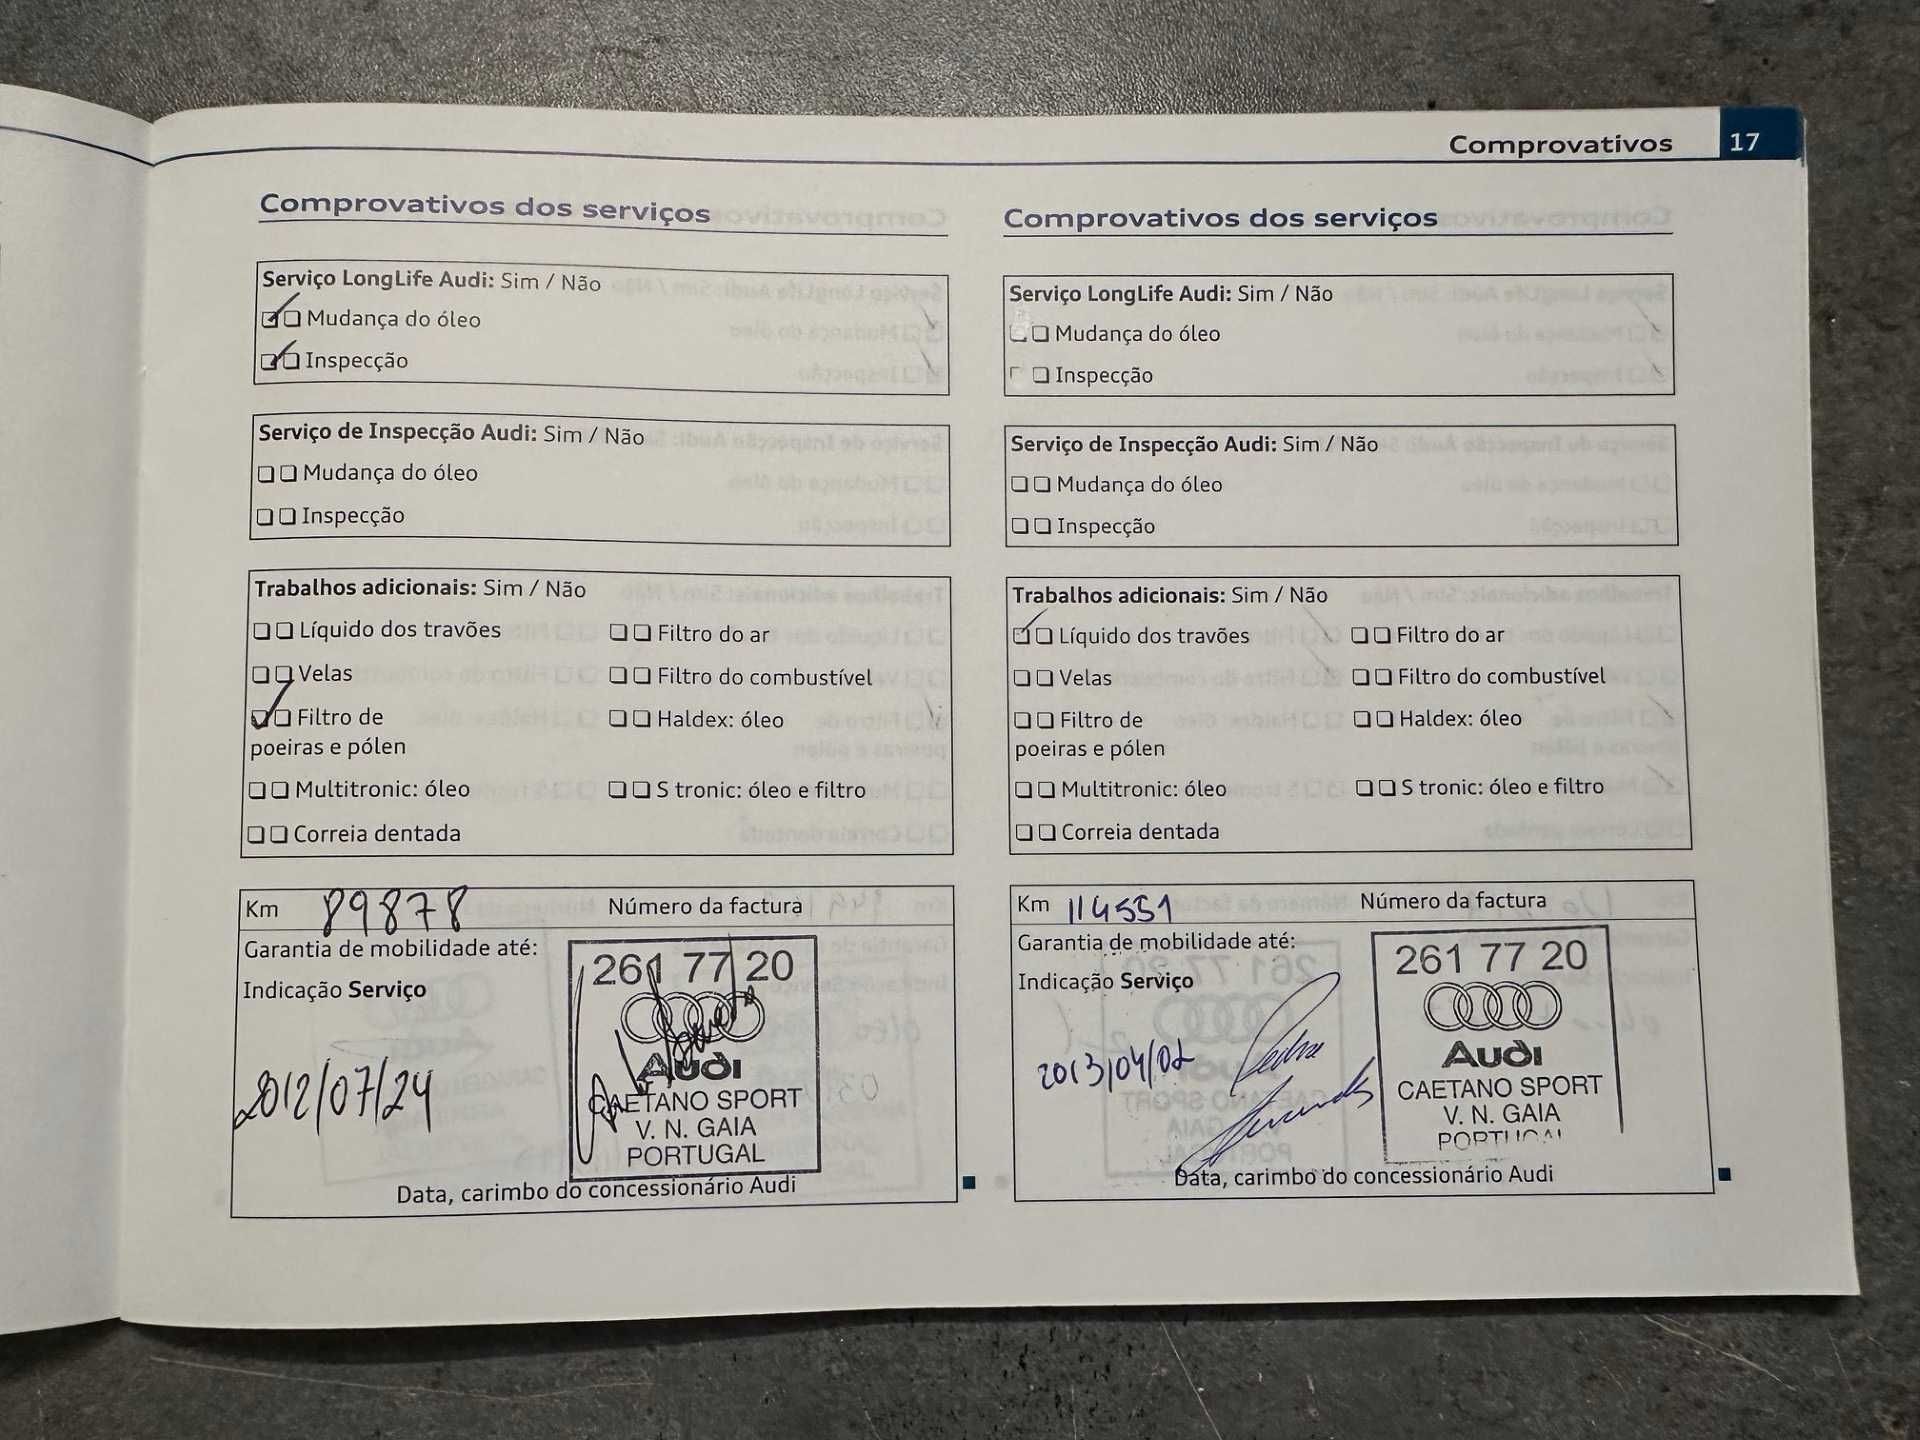 Comprovativos 17
Comprovativos dos serviços
Serviço LongLife Audi: Sim / Não
Mudança do óleo
Inspecção
Serviço de Inspecção Audi: Sim / Não
Mudança do óleo
Inspecção
Trabalhos adicionais: Sim / Não
Líquido dos travões
Filtro do ar
Velas
Filtro do combustível
Filtro de
poeiras e pólen
Haldex: óleo
Multitronic: óleo
S tronic: óleo e filtro
Correia dentada
Km 89878
Número da factura
Garantia de mobilidade até:
Indicação Serviço
2012/07/24
261 77 20
Audi
CAETANO SPORT
V. N. GAIA
PORTUGAL
Data, carimbo do concessionário Audi
Comprovativos dos serviços
Serviço LongLife Audi: Sim / Não
Mudança do óleo
Inspecção
Serviço de Inspecção Audi: Sim / Não
Mudança do óleo
Inspecção
Trabalhos adicionais: Sim / Não
Líquido dos travões
Filtro do ar
Velas
Filtro do combustível
Filtro de
poeiras e pólen
Haldex: óleo
Multitronic: óleo
S tronic: óleo e filtro
Correia dentada
Km 114551
Número da factura
Garantia de mobilidade até:
Indicação Serviço
2013/04/02
Pedro
261 77 20
Audi
CAETANO SPORT
V. N. GAIA
PORTUGAL
Data, carimbo do concessionário Audi